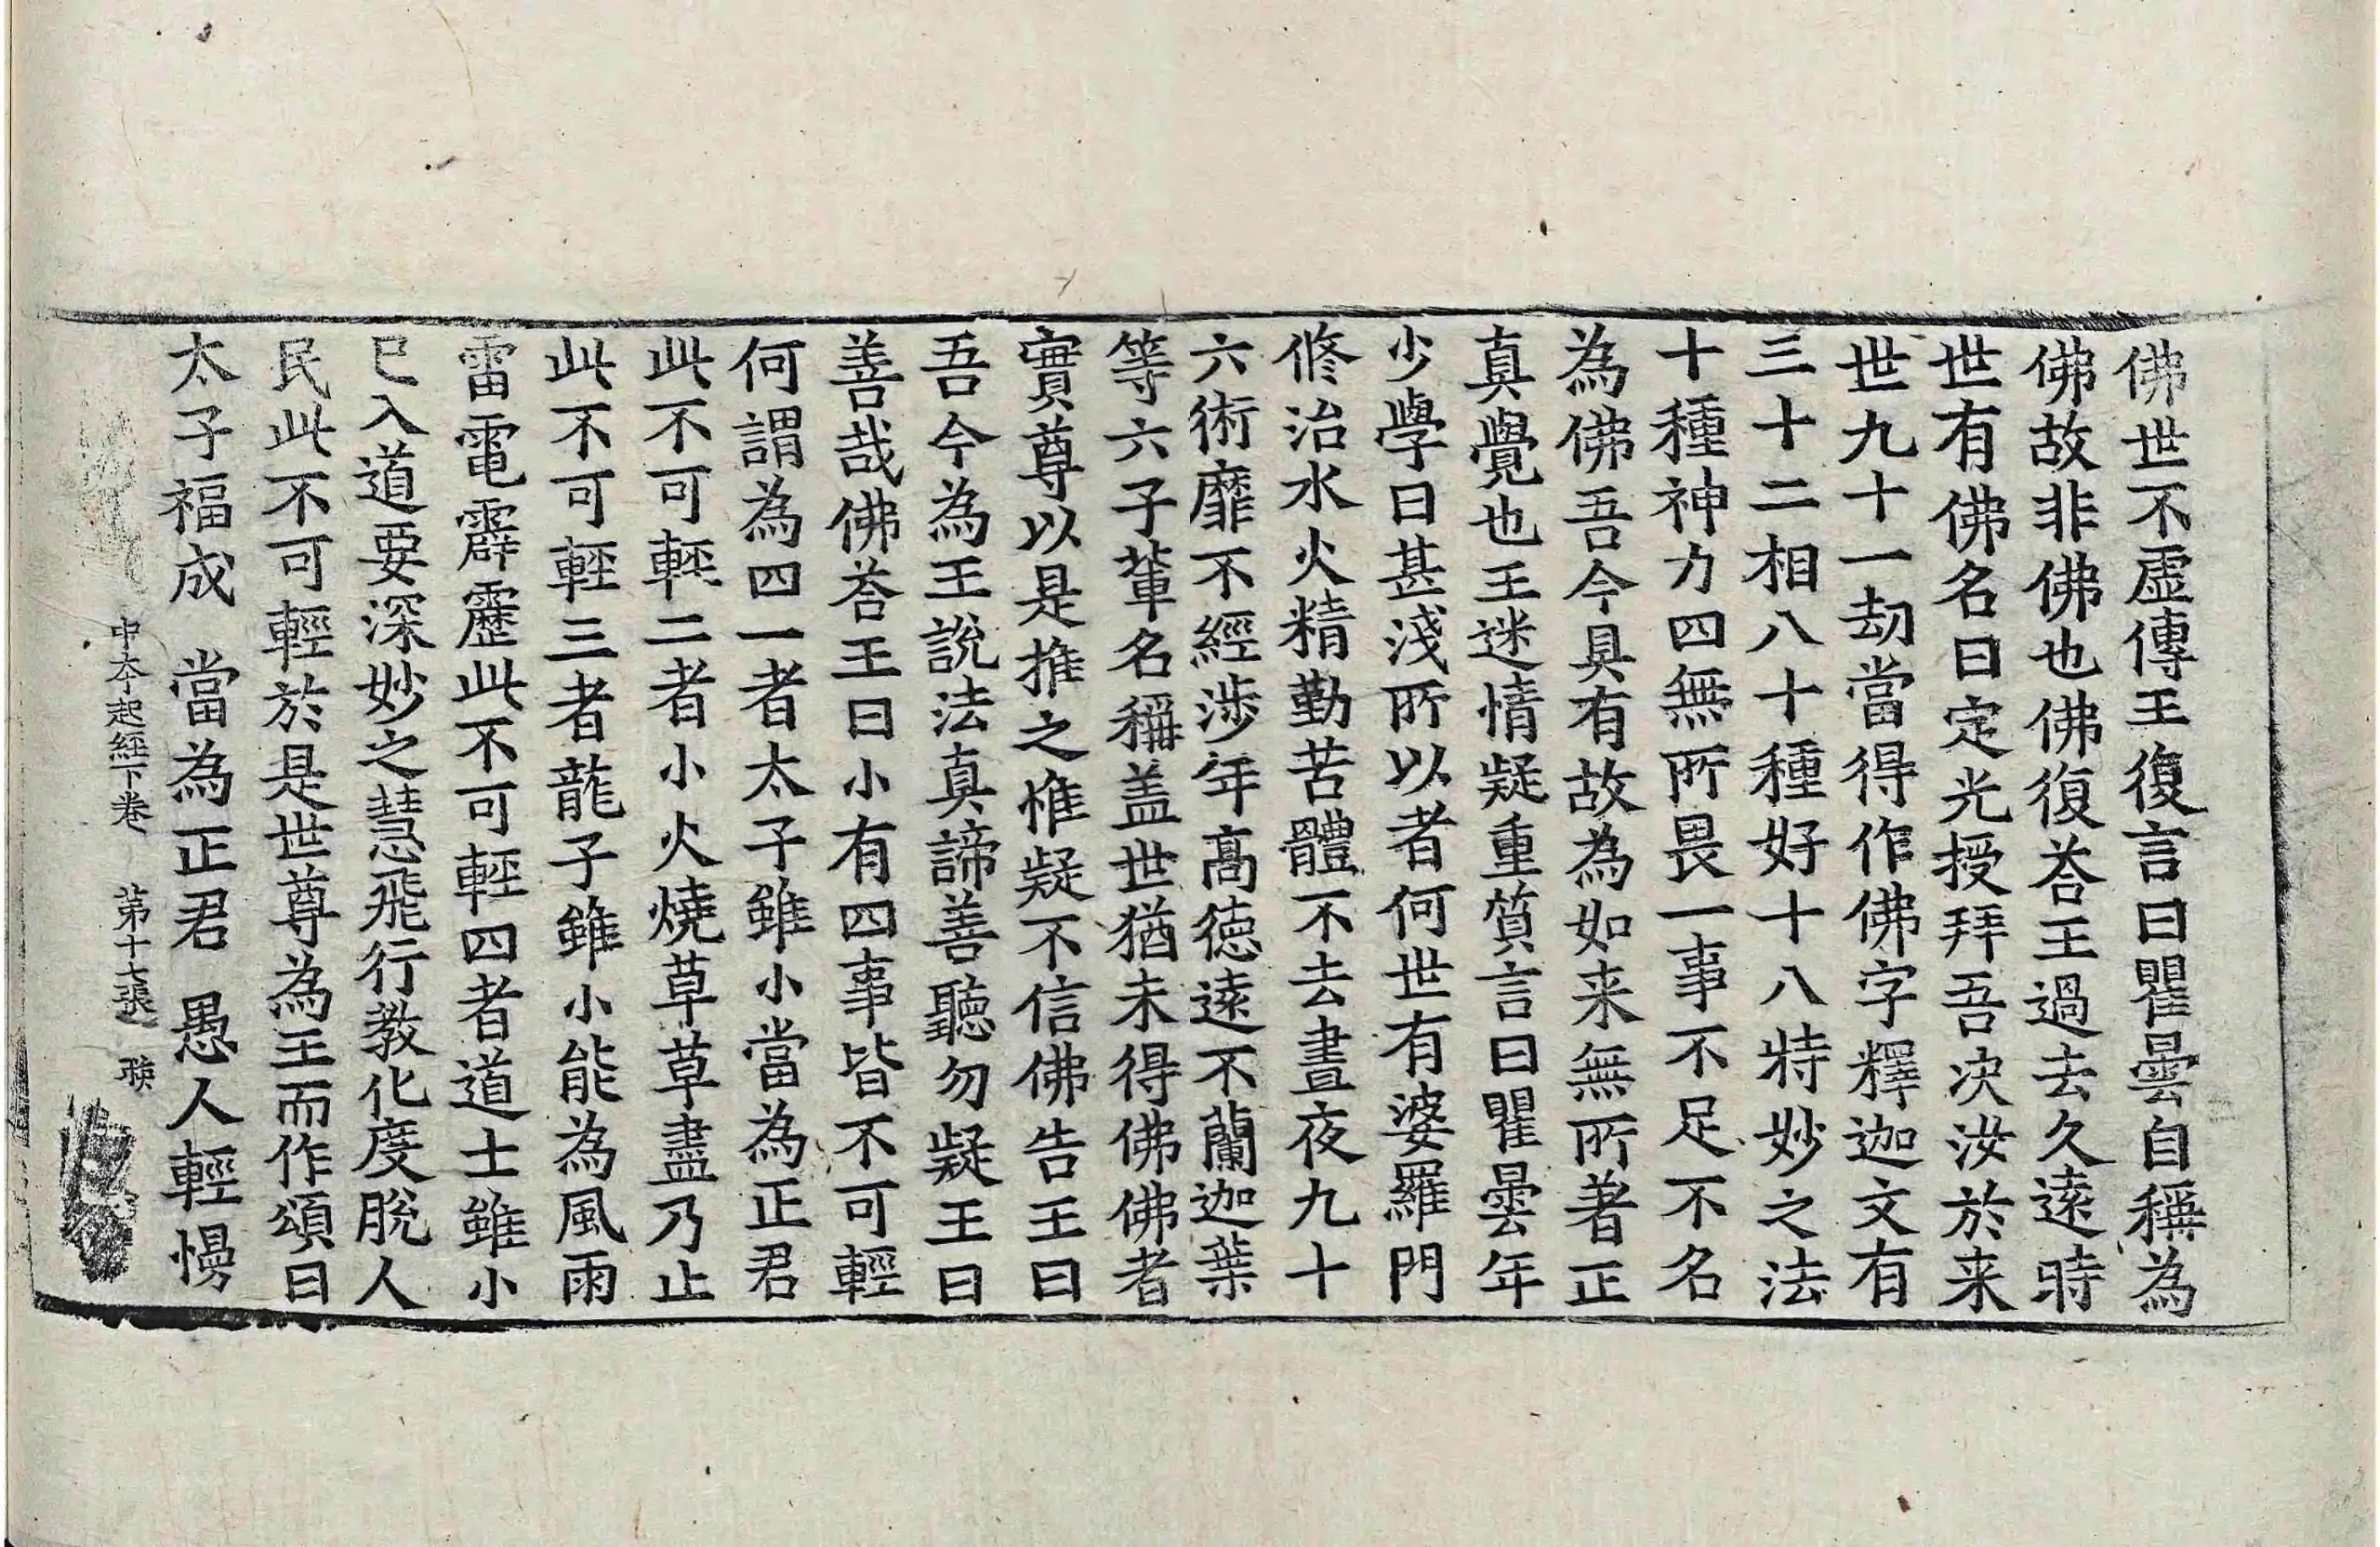 佛世不虛傳王復言曰瞿曇自稱為
佛故非佛也佛復荅王過去久遠時
世有佛名曰定光授拜吾决汝於来
世九十一劫當得作佛字釋迦文有
三十二相八十種好十八特妙之法
十種神力四無所畏一事不足不名
為佛吾今具有故為如来無所著正
真覺也王迷情疑重質言曰瞿曇年
少學日甚淺所以者何世有婆羅門
修治水火精勤苦體不去晝夜九十
六術靡不經涉年髙徳遠不蘭迦葉
等六子輩名稱盖世猶未得佛佛者
實尊以是推之惟疑不信佛告王曰
吾今為王說法真諦善聽勿疑王曰
善哉佛荅王曰小有四事皆不可輕
何謂為四一者太子雖小當為正君
此不可輕二者小火燒草草盡乃止
此不可輕三者龍子雖小能為風雨
雷電霹靂此不可輕四者道士雖小
已入道要深妙之慧飛行教化度脫人
民此不可輕於是世尊為王而作頌曰
太子福成　當為正君　愚人輕慢
中夲起經下卷　第十七張